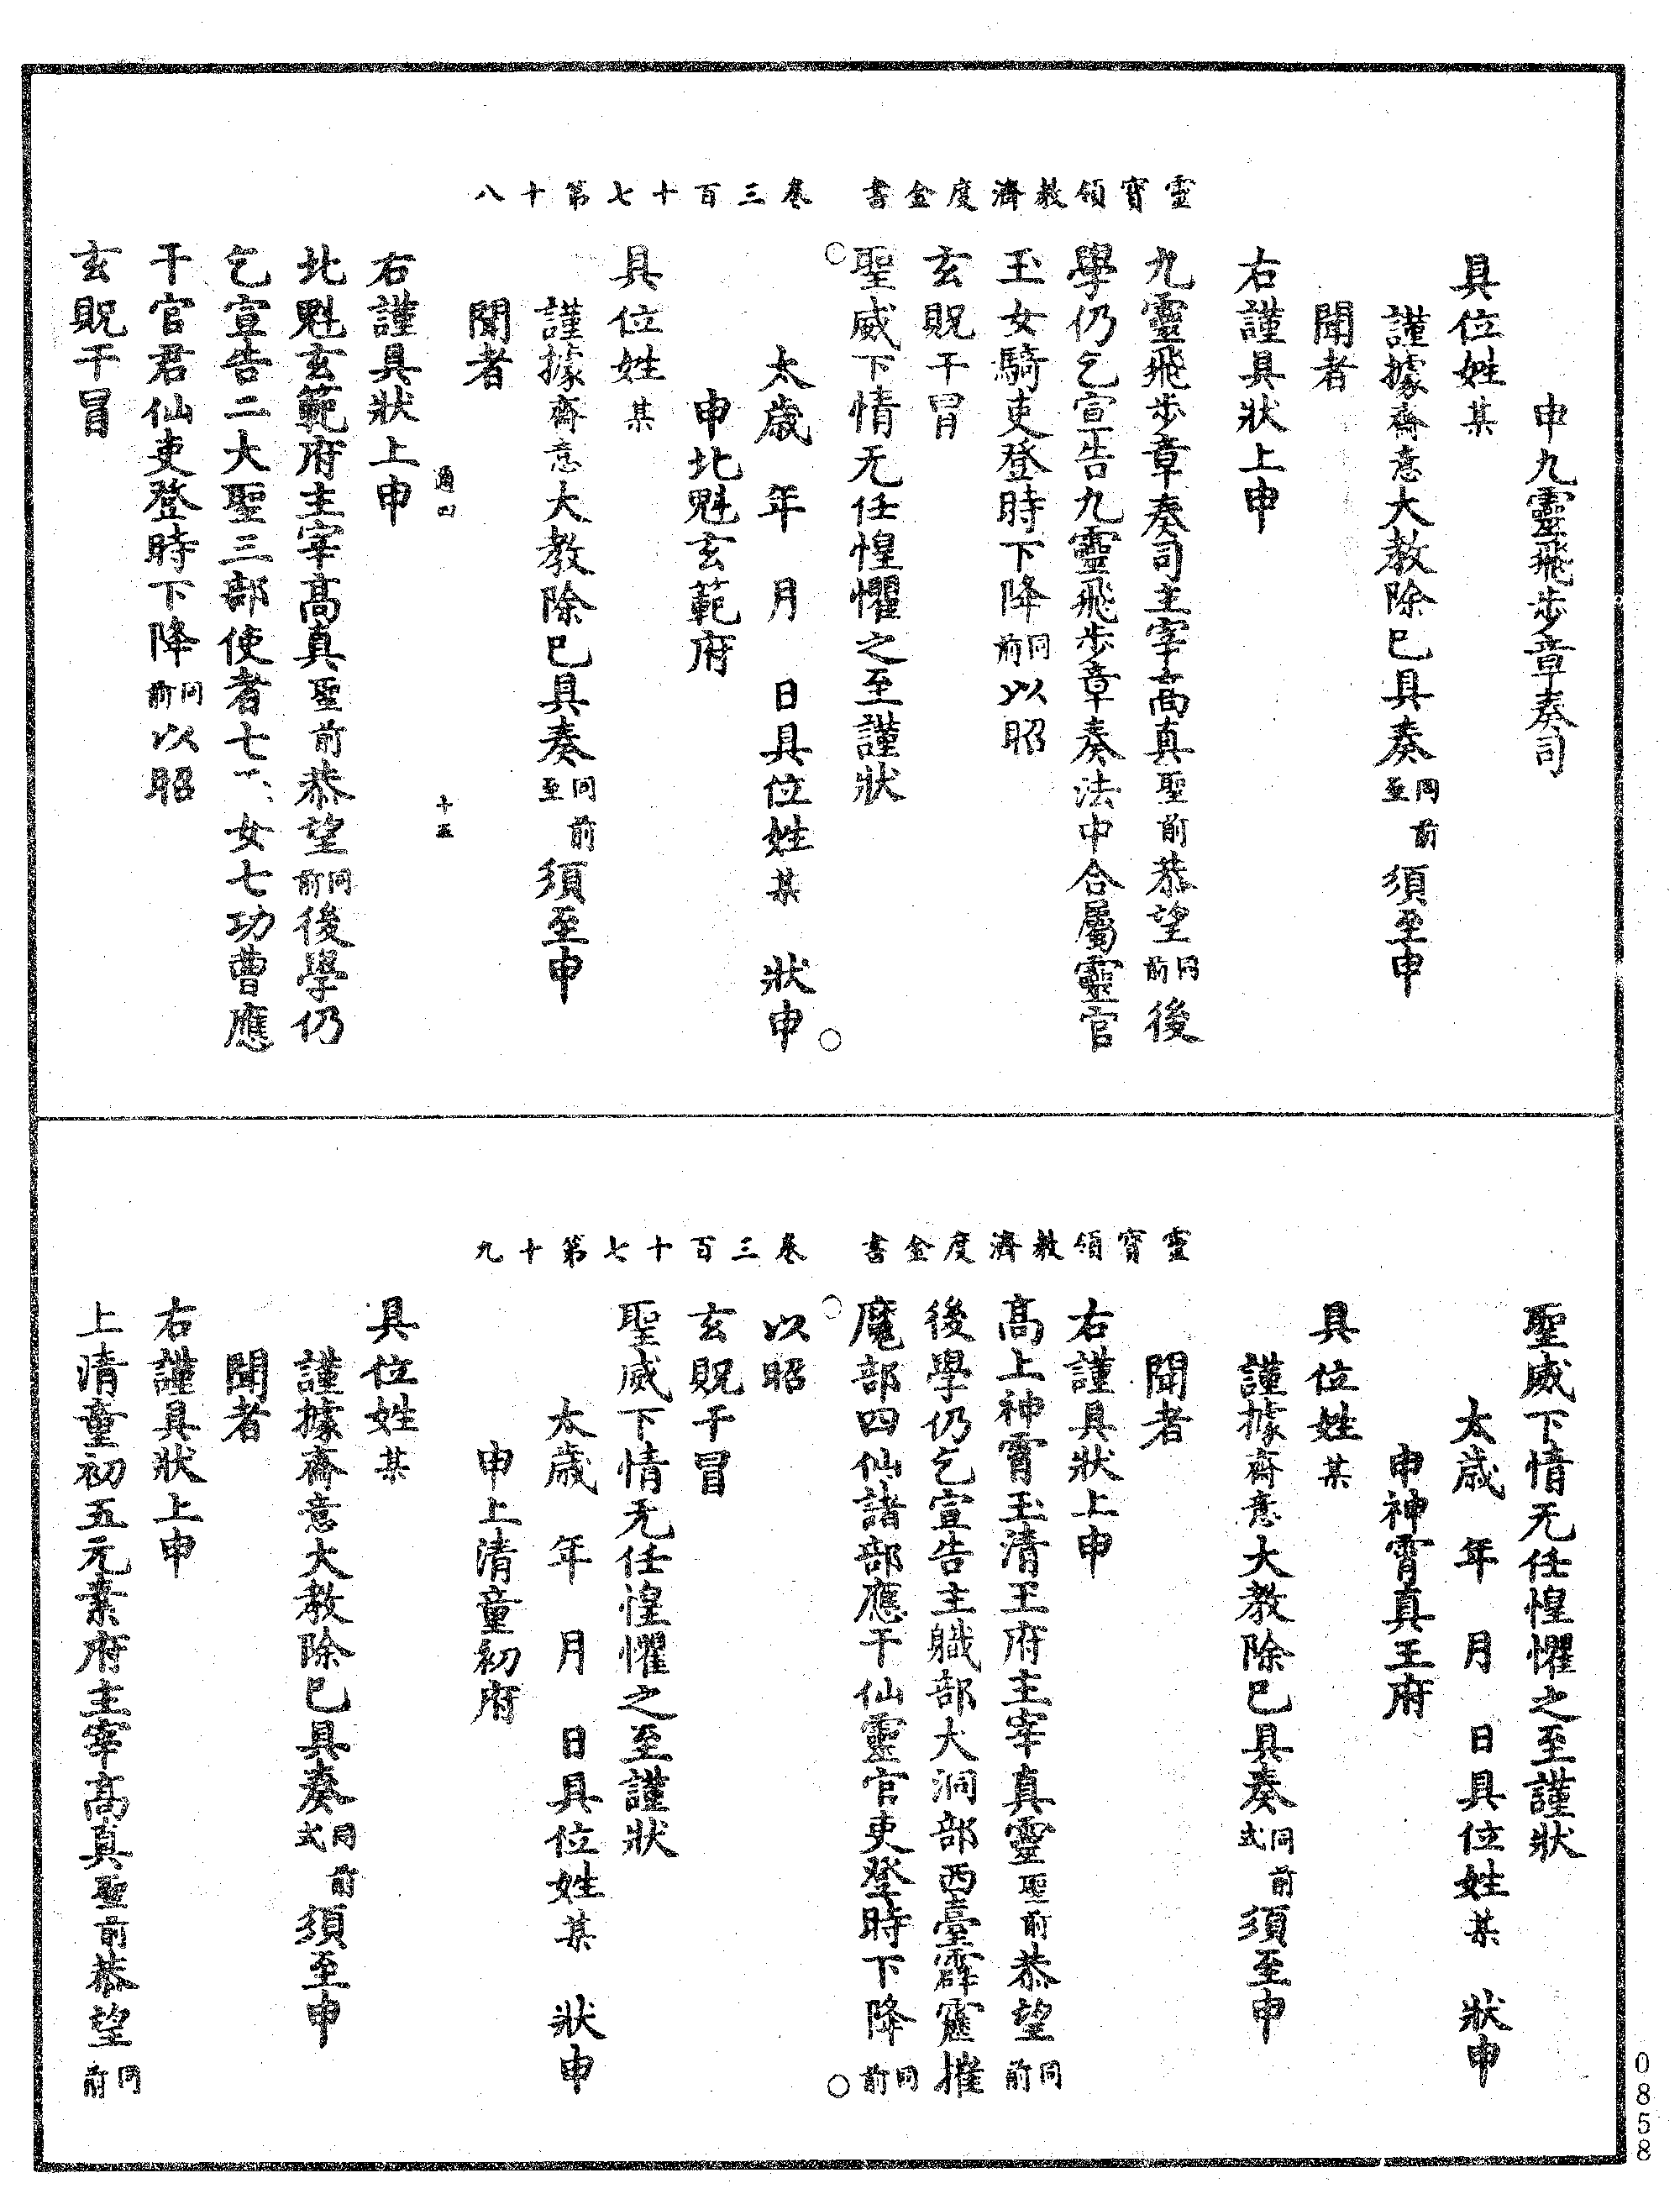 靈寶領教濟度金書　卷三百十七第十八
申九靈飛步章奏司
具位姓某
謹據齋意大教除已具奏同前至須至申
聞者
右謹具狀上申
九靈飛步章奏司主宰高真聖前恭望同前後
學仍乞宣告九靈飛步章奏法中合屬靈官
玉女騎吏登時下降同前以昭
玄貺干冒
聖威下情无任惶懼之至謹狀
太歲　年　月　日具位姓某　狀申
申北魁玄範府
具位姓某
謹據齋意大教除已具奏同前至須至申
聞者
十五
右謹具狀上申
北魁玄範府主宰高真聖前恭望同前後學仍
乞宣告二大聖三部使者七女七功曹應
干官君仙吏登時下降同前以昭
玄貺干冒
靈寶領教濟度金書　卷三百十七第十九
聖威下情无任惶懼之至謹狀
太歲　年　月　日具位姓某　狀申
申神霄真王府
具位姓某
謹據齋意大教除已具奏同前式須至申
聞者
右謹具狀上申
高上神霄玉清王府主宰真靈聖前恭望同前
後學仍乞宣告主職部大洞部西臺霹靂摧
魔部四仙諸部應干仙靈官吏登時下降同前
以昭
玄貺干冒
聖威下情无任惶懼之至謹狀
太歲　年　月　日具位姓某　狀申
申上清童初府
具位姓某
謹據齋意大教除已具奏同前式須至申
聞者
右謹具狀上申
上清童初五元素府主宰高真聖前恭望同前
0858